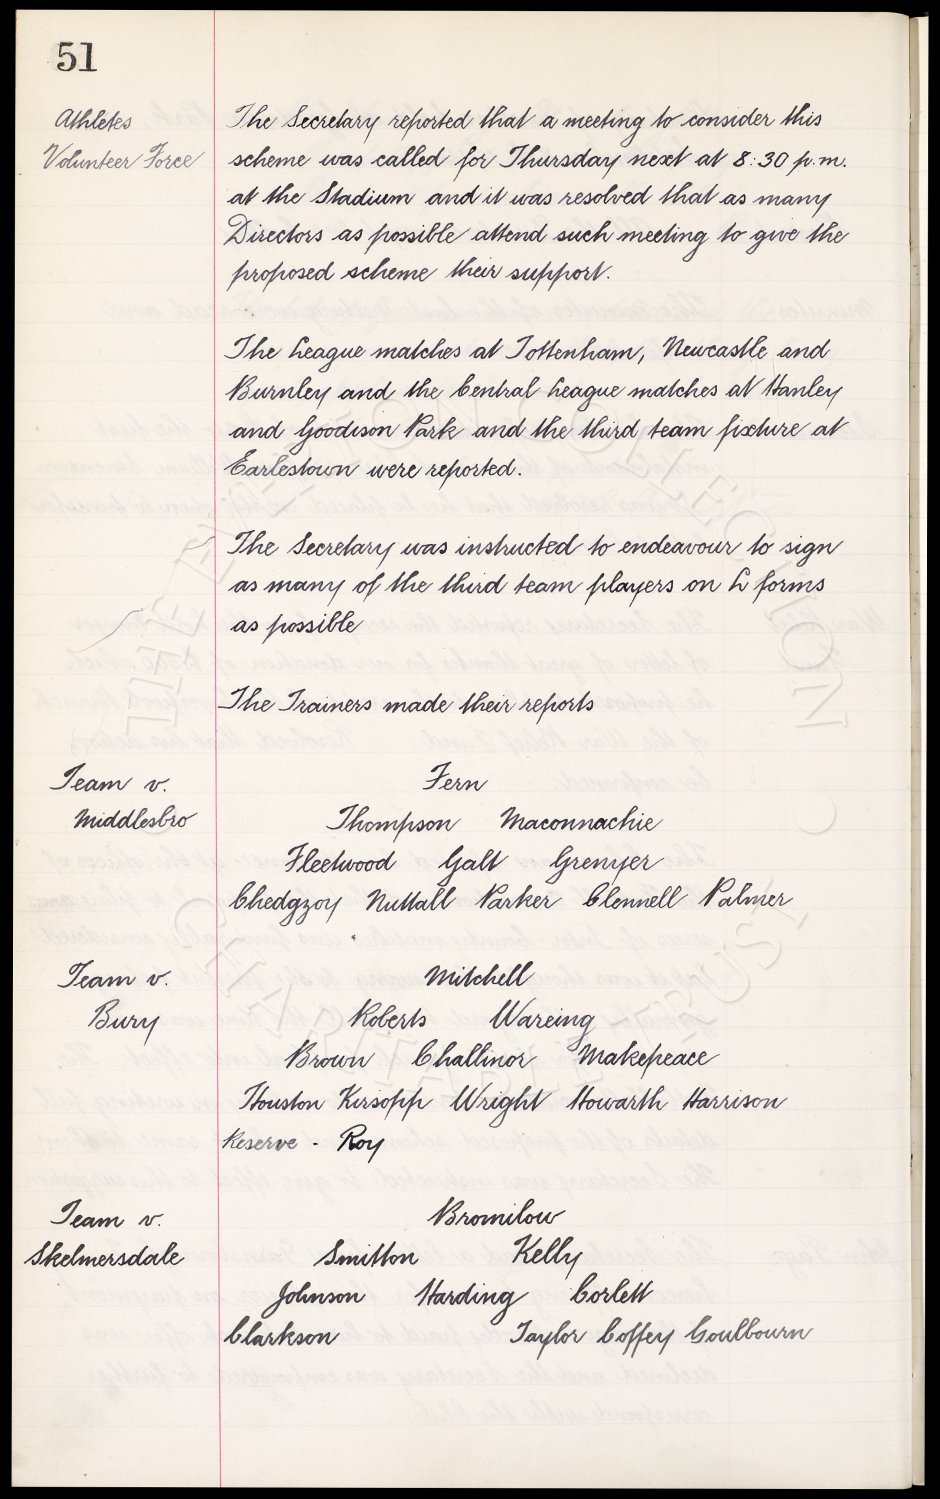 51
Athletes
Volunteer Force
The Secretary reported that a meeting to consider this
scheme was called for Thursday next at 8:30 p.m.
at the Stadium and it was resolved that as many
Directors as possible attend such meeting to give the
proposed scheme their support.
The League matches at Tottenham, Newcastle and
Burnley and the Central League matches at Hanley
and Goodison Park and the third team fixture at
Earlestown were reported.
The Secretary was instructed to endeavour to sign
as many of the third team players on L forms
as possible
The Trainers made their reports
Team v.
Middlesbro
Fern
Thompson Maconnachie
Fleetwood Galt Grenyer
Chedgzoy Nuttall Parker Clennell Palmer
Team v.
Bury
Mitchell
Roberts Wareing
Brown Challinor Makepeace
Houston Kirsopp Wright Howarth Harrison
Reserve - Roy
Team v.
Skelmersdale
Bromilow
Smitton Kelly
Johnson Harding Corlett
Clarkson Taylor Coffey Goulbourn
THE EVERTON COLLECTION